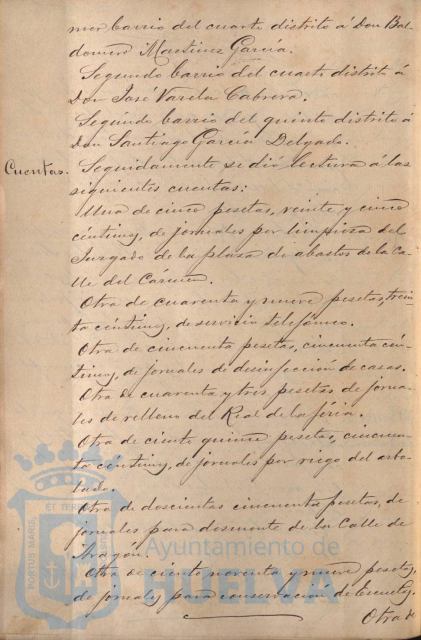 mer barrio del cuarto distrito á Don Bal-
domero Martinez García.
Segundo barrio del cuarto distrito á
Don José Varela Cabrera.
Segundo barrio del quinto distrito á
Don Santiago García Delgado.
Cuentas. Seguidamente se dió lectura á las
siguientes cuentas:
Una de cinco pesetas, veinte y cinco
céntimos, de jornales por limpieza del
Juzgado de la plaza de abastos de la Ca-
lle del Cármen.
Otra de cuarenta y nueve pesetas, trein-
ta céntimos, de servicio telefónico.
Otra de cincuenta pesetas, cincuenta cén-
timos, de jornales de desinfección de casas.
Otra de cuarenta y tres pesetas de jorna-
les de relleno del Real de la féria.
Otra de ciento quince pesetas, cincuen-
ta céntimos, de jornales por riego del arbo-
lado.
Otra de doscientas cincuenta pesetas, de
jornales para desmonte de la Calle de
Aragón.
Otra de ciento noventa y nueve pesetas,
de jornales para conservación de Escuelas.
Otra de
PORTUS MARIS
ET TERRAE
Ayuntamiento de
HUELVA